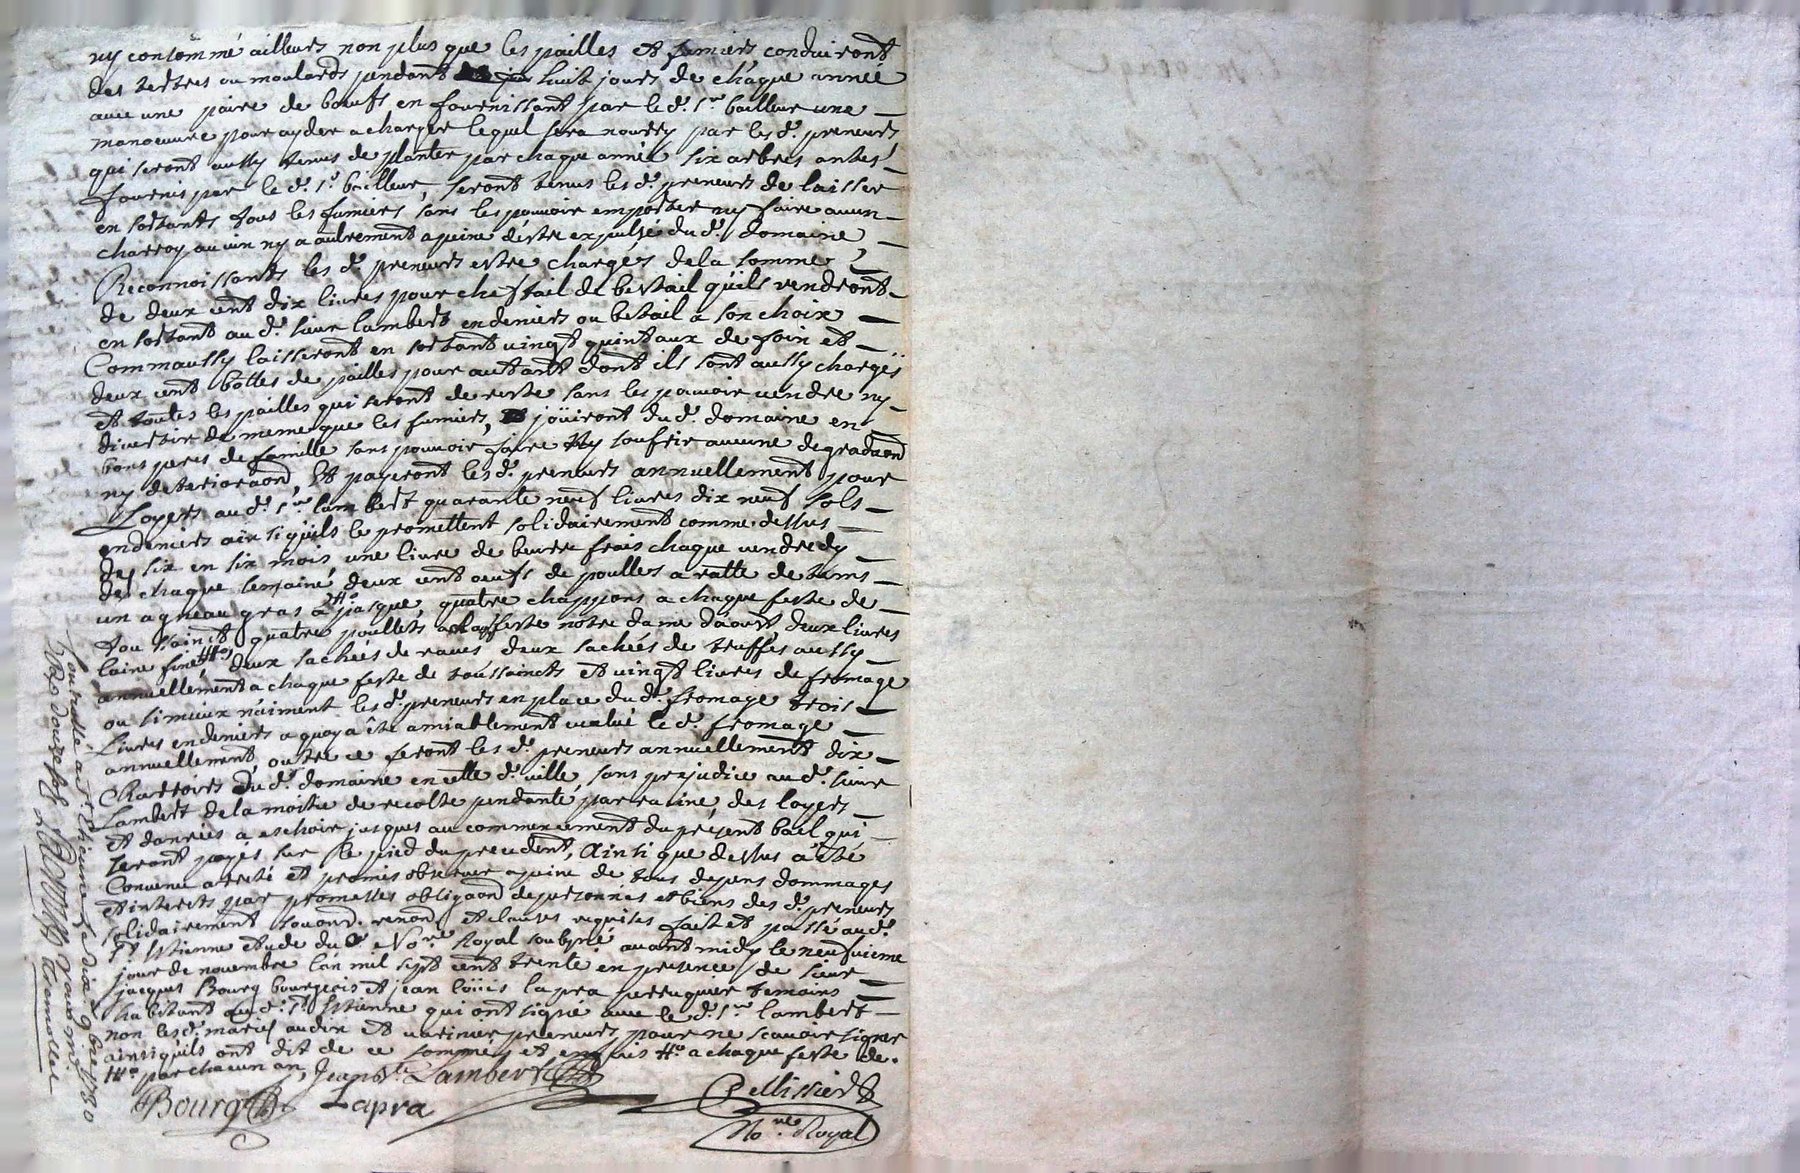 ny consommé ailleurs non plus que les pailles et fumiers, conduiront
des tertres ou moulards pendant huit jours de chaque année
avec une paire de bœufs en fournissant par le d. sr bailleur une
manoeuvre pour ayder a charger lequel sera nourry par les d. preneurs
qui seront aussy tenus de planter par chaque année six arbres antés
fournis par le d. sr bailleur, seront tenus les d. preneurs de laisser
en sortants tous les fumiers sans les pouvoir emporter ny faire aucun
charroy aucun ny autrement a peine d'estre expulsé du d. domaine,
Reconnoissants les d. preneurs estre chargés de la somme
de deux cent dix livres pour cheftail de bestail qu'ils rendront
en sortant au d. sieur lambert en deniers ou betail a son choix
Comm aussy laisseront en sortant vingt quintaux de foin et
deux cent bottes de pailles pour autant dont ils sont aussy chargés
et toutes les pailles qui seront de reste sans les pouvoir vendre ny
divertir de meme que les fumiers, joüiront du d. domaine en
bons peres de famille sans pouvoir faire ny soufrir aucune degradaon
ny deterioraon, Et payeront les d. preneurs annuellement pour
Loyers au d. sr lambert quarante neuf livres dix neuf sols
en deniers ainsi qu'ils le promettent solidairement comme dessus
de six en six mois, une livre de beurre frais chaque vendredy
de chaque semaine, deux cent oeufs de poulles a ratte de tems
un agneau gras a pasque, quatre chappons a chaque feste de
tou saint quatre poullets a chaq feste notre dame d'aoust, deux livres
laine fine # deux sachées de raves deux sachées de truffes aussy
annuellement a chaque feste de toussaincts et vingt livres de fromage
ou si mieux n'aiment les d. preneurs en place du d. fromage trois
Livres en deniers a quoy a été amiablement evalué le d. fromage
annuellement, outre ce feront les d. preneurs annuellement dix
Charroirs du d. domaine en cette d. ville, sans prejudice au d. sieur
Lambert de la moitié de recolte pendante par racine, des loyers
et danrées a eschoir jusques au commencement du présent bail qui
seront payés sur le pied du precedent, Ainsi que dessus a été
Convenu arresté et promis observer a peine de tous depens dommages
et interets par promesses obligaon de personnes et biens des d. preneurs
solidairement renond. et clauses requises fait et passé au d.
St. Etienne etude du No.re Royal soubsné avant midy le neufvieme
jour de novembre l'an mil sept cent trente en presence de sieur
jacques Bourg bourgeois et jean loüis lapra perruquier temoins
habitant au d. St. Etienne qui ont signé avec le d. sr lambert
non les d. mariés audin et preneurs pour ne scavoir signer
ainsi qu'ils ont dit de ce sommés et enquis # a chaque feste de
# par chacun an, Jean bte Lambert
Bourg Lapra Pellissier
No.re Royal
Controllé a St. Etienne le dix 9bre 1730
Reçu douze